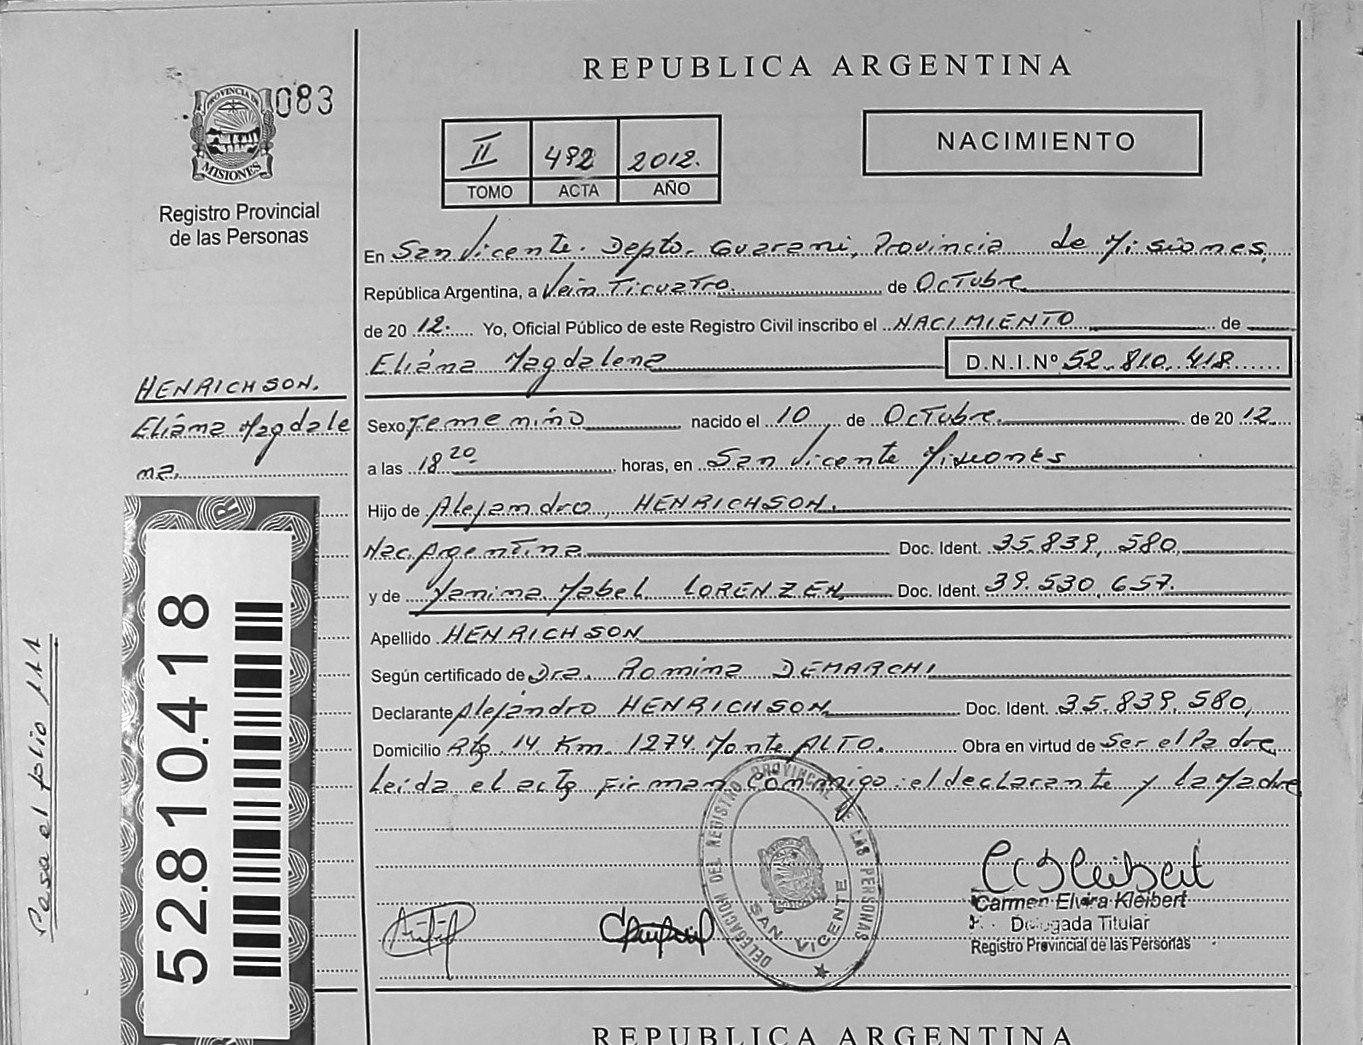 REPUBLICA ARGENTINA
083
PROVINCIA DE MISIONES
Registro Provincial
de las Personas
II 492 2012.
TOMO ACTA AÑO
NACIMIENTO
En San Vicente. Depto. Guarani, Provincia de Misiones,
República Argentina, a VeinTicuatro. de OcTubre
de 2012. Yo, Oficial Público de este Registro Civil inscribo el NACIMIENTO de
Eliána Magdalena D.N.I.Nº 52.810.418
HENRICHSON.
Eliána Magdale
na.
Sexo Femenino nacido el 10 de OcTubre. de 2012.
a las 18 20 horas, en San Vicente Misiones
Hijo de Alejandro, HENRICHSON.
Nac. Argentina Doc. Ident. 35.839,580,
y de Yanina Mabel LORENZEN Doc. Ident. 39.530,657.
Apellido HENRICHSON
Según certificado de Dra. Romina DEMARCHI
Declarante Alejándro HENRICHSON Doc. Ident. 35.839.580,
Domicilio Rta 14 Km. 1274 Monte ALTO. Obra en virtud de Ser el Padre
Leida el acta Firman conmigo: el declarante y la Madre
DELEGACION DEL REGISTRO PROVINCIAL DE LAS PERSONAS
SAN VICENTE
Carmen Elvira Kleibert
Delegada Titular
Registro Provincial de las Personas
52.810.418
Pasa el folio 111
REPUBLICA ARGENTINA